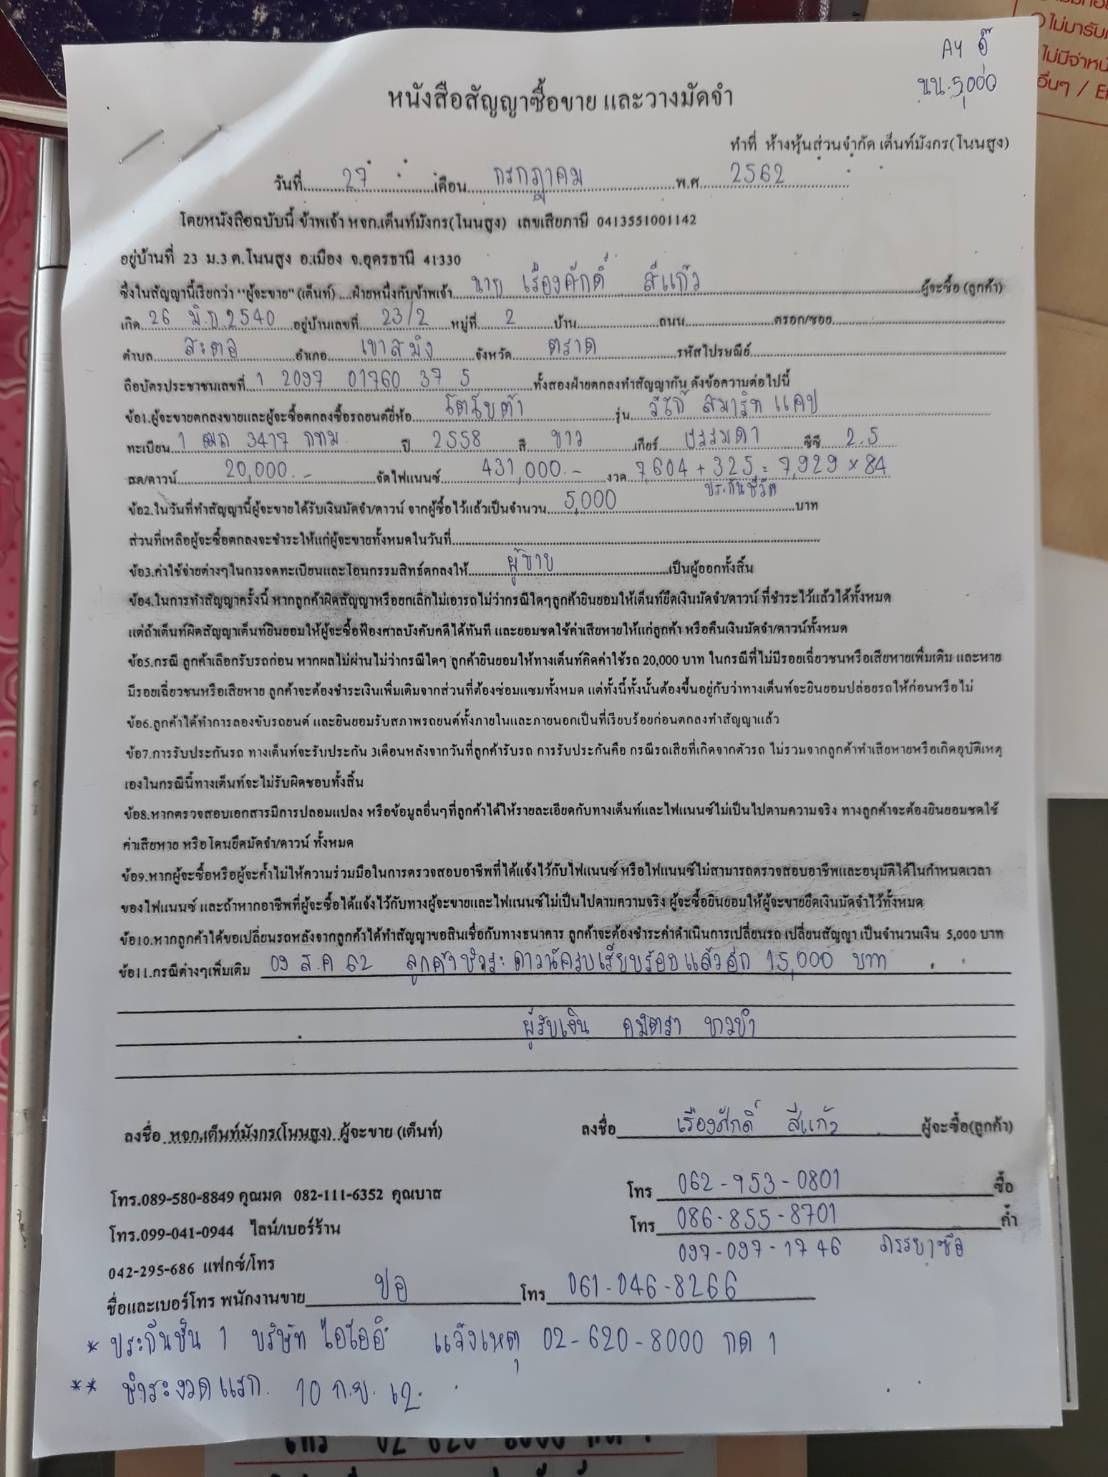 AY อู๊
นน.5,000
หนังสือสัญญาซื้อขาย และวางมัดจำ
ทำที่ ห้างหุ้นส่วนจำกัด เต็นท์มังกร(โนนสูง)
วันที่ 27 เดือน กรกฎาคม พ.ศ 2562
โดยหนังสือฉบับนี้ ข้าพเจ้า หจก.เต็นท์มังกร(โนนสูง) เลขเสียภาษี 0413551001142
อยู่บ้านที่ 23 ม.3 ต.โนนสูง อ.เมือง จ.อุดรธานี 41330
ซึ่งในสัญญานี้เรียกว่า "ผู้จะขาย"(เต็นท์) ฝ่ายหนึ่งกับข้าพเจ้า นาย เรืองศักดิ์ สีแก้ว ผู้จะซื้อ (ลูกค้า)
เกิด 26 มิ.ย 2540 อยู่บ้านเลขที่ 23/2 หมู่ที่ 2 บ้าน ถนน ตรอก/ซอย
ตำบล สะตอ อำเภอ เขาสมิง จังหวัด ตราด รหัสไปรษณีย์
ถือบัตรประชาชนเลขที่ 1 2097 01760 37 5 ทั้งสองฝ่ายตกลงทำสัญญากัน ดังข้อความต่อไปนี้
ข้อ1.ผู้จะขายตกลงขายและผู้จะซื้อตกลงซื้อรถยนต์ยี่ห้อ โตโยต้า รุ่น วีโก้ สมาร์ท แคป
ทะเบียน 1 ฒถ 3417 กทม. ปี 2558 สี ขาว เกียร์ ธรรมดา ซีซี 2.5
สด/ดาวน์ 20,000.- จัดไฟแนนซ์ 431,000.- งวด 7,604 + 325 = 7,929 × 84
ประกันชีวิต
ข้อ2.ในวันที่ทำสัญญานี้ผู้จะขายได้รับเงินมัดจำ/ดาวน์ จากผู้ซื้อไว้แล้วเป็นจำนวน 5,000 บาท
ส่วนที่เหลือผู้จะซื้อตกลงจะชำระให้แก่ผู้จะขายทั้งหมดในวันที่
ข้อ3.ค่าใช้จ่ายต่างๆในการจดทะเบียนและโอนกรรมสิทธ์ตกลงให้ ผู้ขาย เป็นผู้ออกทั้งสิ้น
ข้อ4.ในการทำสัญญาครั้งนี้ หากลูกค้าผิดสัญญาหรือยกเลิกไม่เอารถไม่ว่ากรณีใดๆลูกค้ายินยอมให้เต็นท์ยึดเงินมัดจำ/ดาวน์ ที่ชำระไว้แล้วได้ทั้งหมด
แต่ถ้าเต็นท์ผิดสัญญาเต็นท์ยินยอมให้ผู้จะซื้อฟ้องศาลบังคับคดีได้ทันที และยอมชดใช้ค่าเสียหายให้แก่ลูกค้า หรือคืนเงินมัดจำ/ดาวน์ทั้งหมด
ข้อ5.กรณี ลูกค้าเลือกรับรถก่อน หากผลไม่ผ่านไม่ว่ากรณีใดๆ ลูกค้ายินยอมให้ทางเต็นท์คิดค่าใช้รถ 20,000 บาท ในกรณีที่ไม่มีรอยเฉี่ยวชนหรือเสียหายเพิ่มเติม และหาย
มีรอยเฉี่ยวชนหรือเสียหาย ลูกค้าจะต้องชำระเงินเพิ่มเติมจากส่วนที่ต้องซ่อมแซมทั้งหมด แต่ทั้งนี้ทั้งนั้นต้องขึ้นอยู่กับว่าทางเต็นท์จะยินยอมปล่อยรถให้ก่อนหรือไม่
ข้อ6.ลูกค้าได้ทำการลองขับรถยนต์ และยินยอมรับสภาพรถยนต์ทั้งภายในและภายนอกเป็นที่เรียบร้อยก่อนตกลงทำสัญญาแล้ว
ข้อ7.การรับประกันรถ ทางเต็นท์จะรับประกัน 3เดือนหลังจากวันที่ลูกค้ารับรถ การรับประกันคือ กรณีรถเสียที่เกิดจากตัวรถ ไม่รวมจากลูกค้าทำเสียหายหรือเกิดอุบัติเหตุ
เองในกรณีนี้ทางเต็นท์จะไม่รับผิดชอบทั้งสิ้น
ข้อ8.หากตรวจสอบเอกสารมีการปลอมแปลง หรือข้อมูลอื่นๆที่ลูกค้าได้ให้รายละเอียดกับทางเต็นท์และไฟแนนซ์ไม่เป็นไปตามความจริง ทางลูกค้าจะต้องยินยอมชดใช้
ค่าเสียหาย หรือโดนยึดมัดจำ/ดาวน์ ทั้งหมด
ข้อ9.หากผู้จะซื้อหรือผู้จะค้ำไม่ให้ความร่วมมือในการตรวจสอบอาชีพที่ได้แจ้งไว้กับไฟแนนซ์ หรือไฟแนนซ์ไม่สามารถตรวจสอบอาชีพและอนุมัติได้ในกำหนดเวลา
ของไฟแนนซ์ และถ้าหากอาชีพที่ผู้จะซื้อได้แจ้งไว้กับทางผู้จะขายและไฟแนนซ์ไม่เป็นไปตามความจริง ผู้จะซื้อยินยอมให้ผู้จะขายยึดเงินมัดจำไว้ทั้งหมด
ข้อ10.หากลูกค้าได้ขอเปลี่ยนรถหลังจากลูกค้าได้ทำสัญญาขอสินเชื่อกับทางธนาคาร ลูกค้าจะต้องชำระค่าดำเนินการเปลี่ยนรถ เปลี่ยนสัญญา เป็นจำนวนเงิน 5,000 บาท
ข้อ11.กรณีต่างๆเพิ่มเติม 09 ส.ค 62 ลูกค้าชำระดาวน์ครบเรียบร้อยแล้วอีก 15,000 บาท
ผู้รับเงิน
ลงชื่อ หจก.เต็นท์มังกร(โนนสูง) ผู้จะขาย (เต็นท์) ลงชื่อ เรืองศักดิ์ สีแก้ว ผู้จะซื้อ(ลูกค้า)
โทร.089-580-8849 คุณมด 082-111-6352 คุณบาส โทร 062-953-0801 ซื้อ
โทร.099-041-0944 ไลน์/เบอร์ร้าน โทร 086-855-8701 ค้ำ
097-097-1746 ภรรยาซื้อ
042-295-686 แฟกซ์/โทร
ชื่อและเบอร์โทร พนักงานขาย ปอ โทร 061-046-8266
* ประกันชั้น 1 บริษัท ไอโออิ แจ้งเหตุ 02-620-8000 กด 1
** ชำระงวดแรก 10 ก.ย. 62